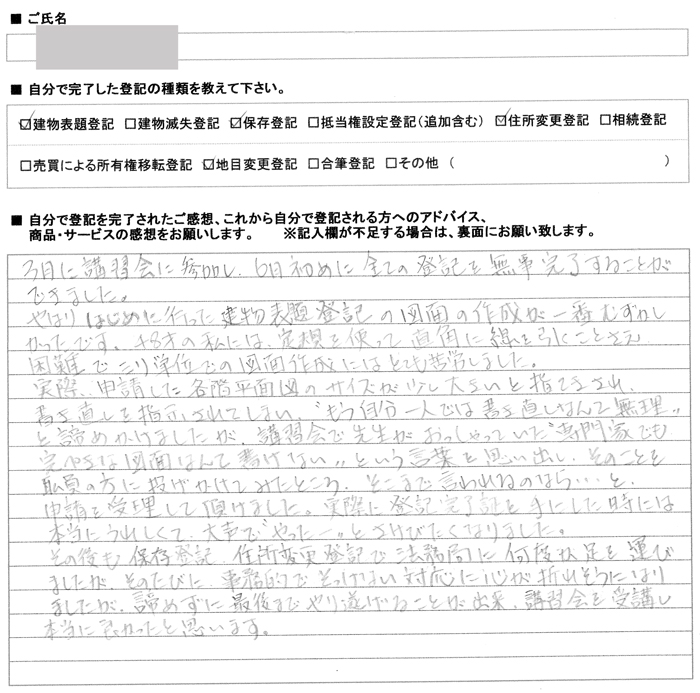 ■ ご氏名
■ 自分で完了した登記の種類を教えて下さい。
☑建物表題登記 □建物滅失登記 ☑保存登記 □抵当権設定登記(追加含む) ☑住所変更登記 □相続登記
□売買による所有権移転登記 ☑地目変更登記 □合筆登記 □その他 ( )
■ 自分で登記を完了されたご感想、これから自分で登記される方へのアドバイス、
商品・サービスの感想をお願いします。 ※記入欄が不足する場合は、裏面にお願い致します。
3月に講習会に参加し、6月初めに全ての登記を無事完了することが
できました。
やはりはじめに行った建物表題登記の図面の作成が一番むずかし
かったです。才の私には、定規を使って直角に線を引くことさえ
困難でミリ単位での図面作成にはとても苦労しました。
実際、申請した各階平面図のサイズが少し大きいと指てきされ、
書き直しを指示されてしまい、"もう自分一人では書き直しなんて無理"
と諦めかけましたが、講習会で先生がおっしゃっていた"専門家でも
完ぺきな図面なんて書けない"という言葉を思い出し、そのことを
職員の方に投げかけてみたところ、そこまで言われるのなら…と、
申請を受理して頂けました。実際に登記完了証を手にした時には
本当にうれしくて、大声で"やったー"とさけびたくなりました。
その後も保存登記、住所変更登記で法務局に何度か足を運び
ましたが、そのたびに、事務的でそっけない対応に心が折れそうになり
ましたが、諦めずに最後までやり遂げることが出来、講習会を受講し
本当に良かったと思います。